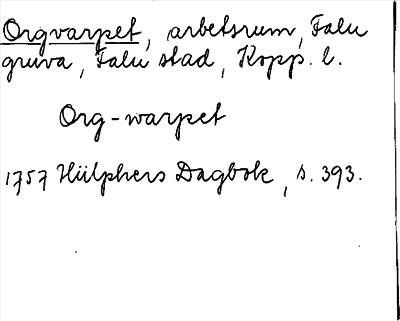 Orgvarpet, arbetsrum, Falu
gruva, Falu stad, Kopp. l.
Org-warpet
1757 Hülphers Dagbok, s. 393.